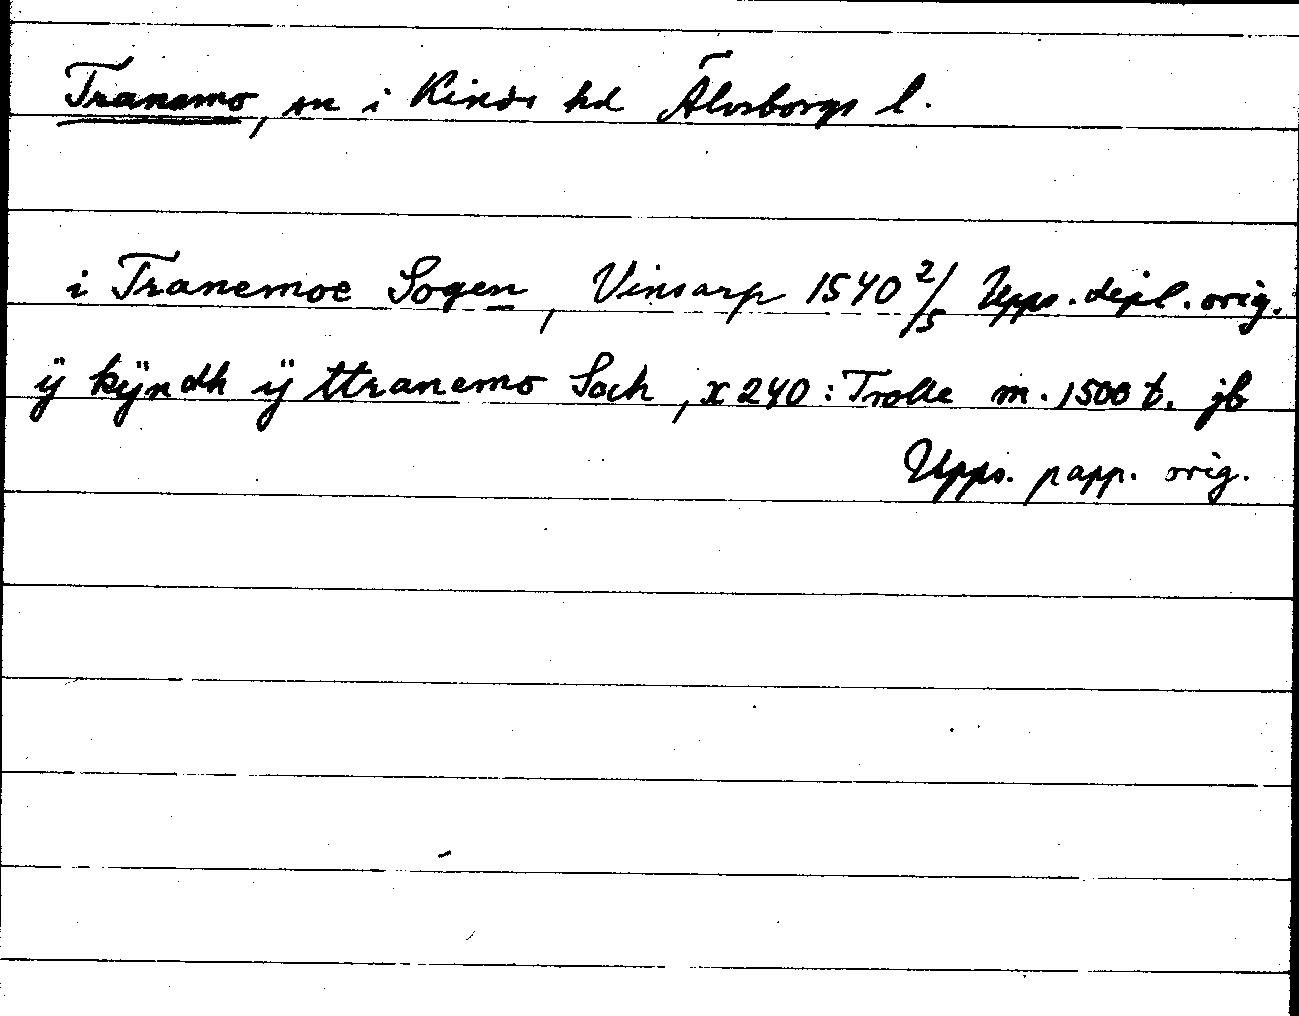 Tranemo, sn i Kinds hd Älvsborgs l.
i Tranemoe Sogen, Vinsarp 1540 2/5 Upps. dipl. orig.
ÿ kÿndh ÿ ttranemo Soch, x 240: Trolle m. 1500 t. jb
Upps. papp. orig.